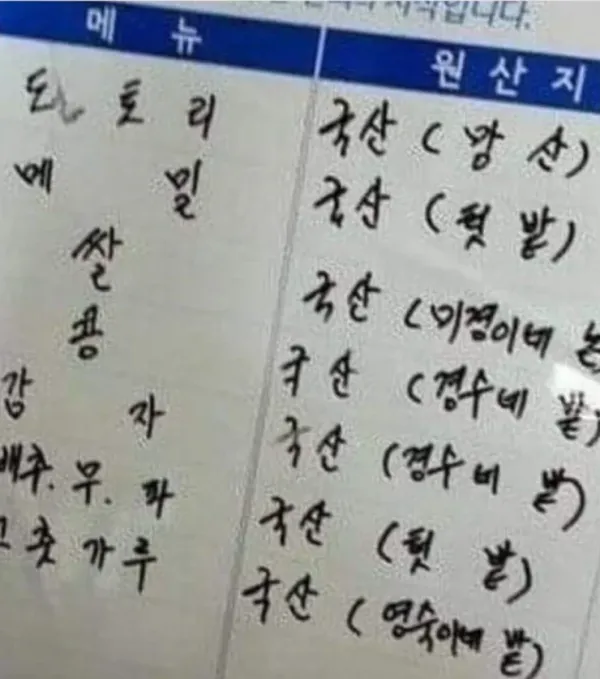 시작입니다.
메뉴 원산지
도토리 국산 (앞산)
메밀 국산 (텃밭)
쌀 국산 (미경이네 논
콩 국산 (경수네 밭)
감자 국산 (경수네 밭)
배추. 무. 파 국산 (텃밭)
고춧가루 국산 (영숙이네 밭)